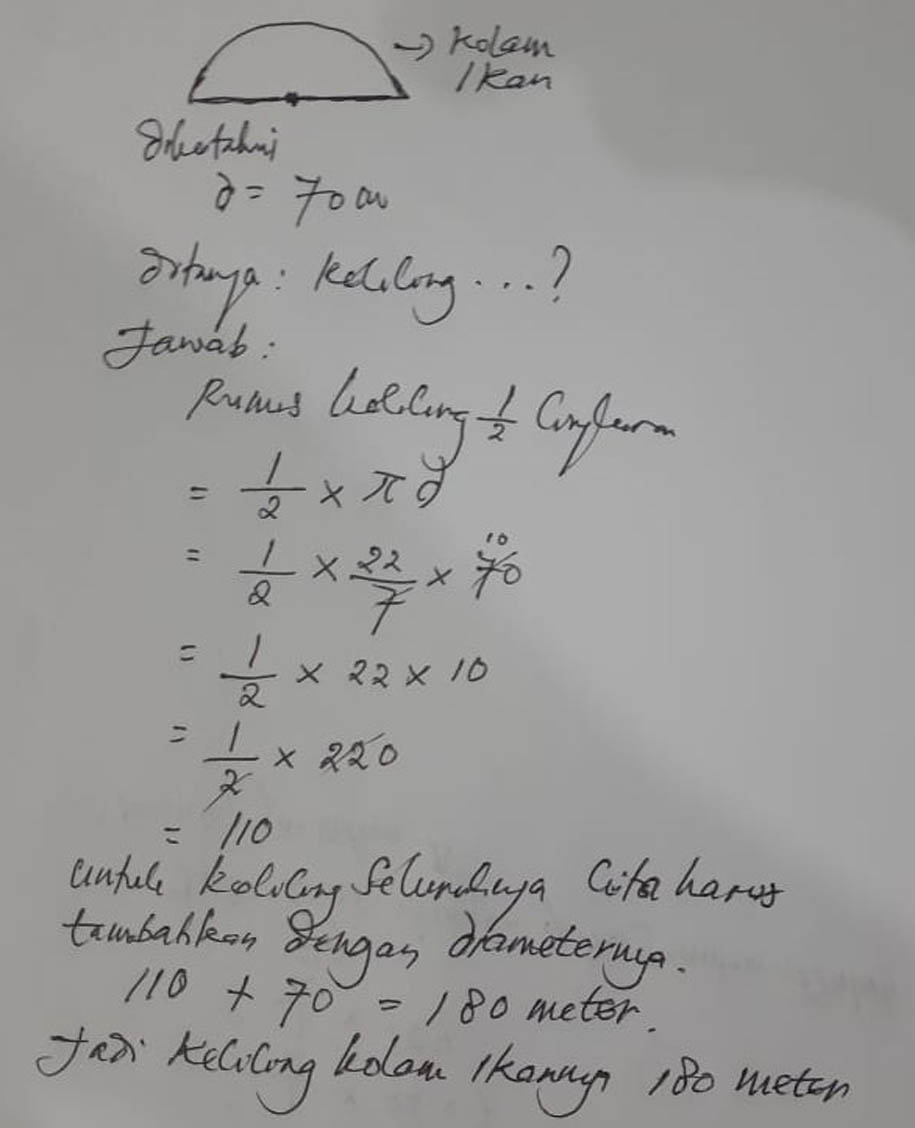 → Kolam
Ikan
Diketahui
d = 70 m
Ditanya : Keliling ....?
Jawab :
Rumus keliling 1/2 lingkaran
= 1/2 × π d
= 1/2 × 22/7 × 70 10
= 1/2 × 22 × 10
= 1/2 × 220
= 110
untuk keliling Seluruhnya kita harus
tambahkan dengan diameternya.
110 + 70 = 180 meter.
Jadi keliling kolam ikannya 180 meter